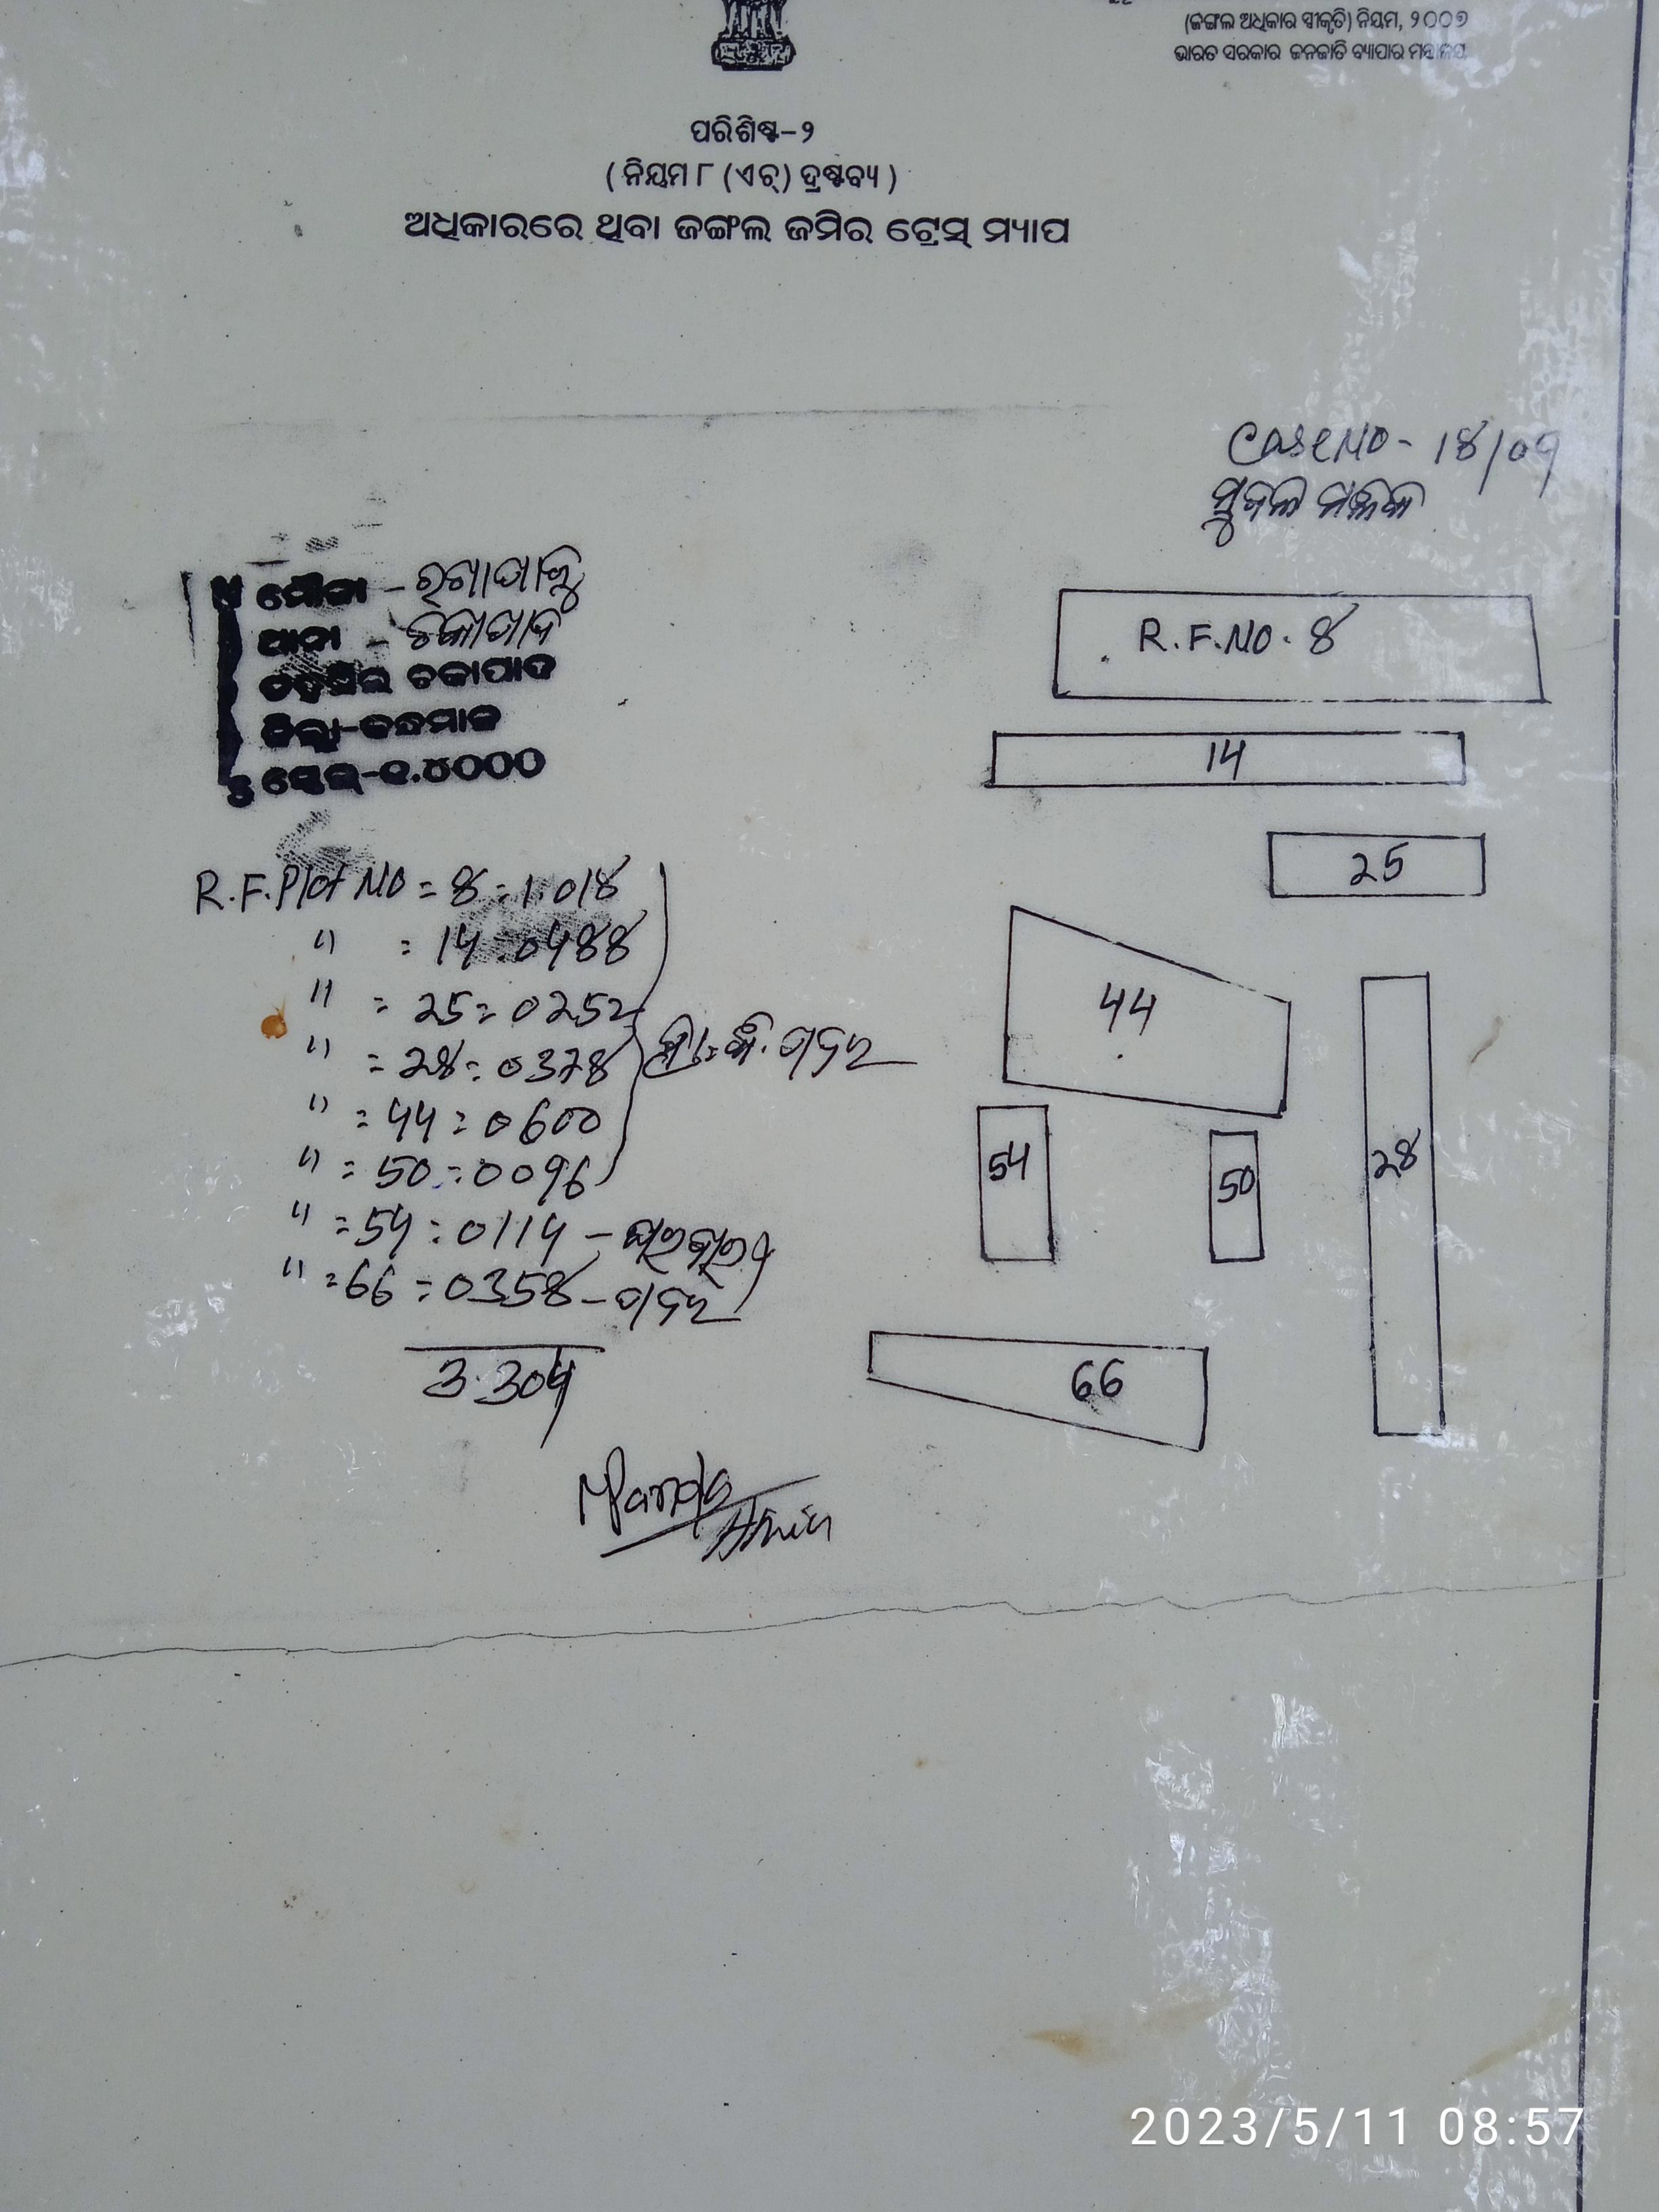 (ଜଙ୍ଗଲ ଅଧିକାର ସ୍ୱୀକୃତି) ନିୟମ, ୨୦୦୭
ଭାରତ ସରକାର ଜନଜାତି ବ୍ୟାପାର ମନ୍ତ୍ରାଳୟ
ପରିଶିଷ୍ଟ-୨
( ନିୟମ ୮ (ଏଚ୍) ଦ୍ରଷ୍ଟବ୍ୟ )
ଅଧିକାରରେ ଥିବା ଜଙ୍ଗଲ ଜମିର ଟ୍ରେସ୍ ମ୍ୟାପ
Case NO - 18/09
ସୁବଳ ମଲ୍ଲିକ
ମୌଜା -
ଥାନା - ଚକାପାଦ
ତହସିଲ ଚକାପାଦ
ଜିଲ୍ଲା-କନ୍ଧମାଳ
ସ୍କେଲ୍-୧.୪୦୦୦
R.F.NO. 8
14
25
44
28
54
50
66
R.F. Plot NO = 8 = 1.018
" = 14 = 0488
" = 25 = 0252
" = 28 = 0378
" = 44 = 0600
" = 50 = 0096
" = 54 = 0114 - ଘରବାରୀ
" = 66 = 0358 -
3.304
Amin
2023/5/11 08:57